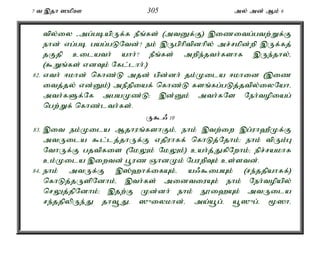 7 வ இதா ஸமிஊ 305 அல் அன் ஆம் 6
வில்லை அப்படியிருக்க நீங்கள் (அவனுக்கு) இணைவைப்பவற்றுக்கு
நான் எப்படி பயப்படுவேன்? நம் இருபிரிவினரில் அச்சமின்றி இருக்கத்
தகுதி உடையவர் யார்? நீங்கள் அறிந்தவர்களாக இருந்தால்,
(கூறுங்கள் எனவும் கேட்டார்.)
82. எவர் ஈமான் கொண்டு அதன் பின்னர் தம்முடைய ஈமானை (இணை
வைத்தல் என்னும்) அநீதியைக் கொண்டு களங்கப்படுத்தவில்லையோ,
அவர்களுக்கே அபயமுண்டு; இன்னும் அவர்களே நேர்வழியைப்
பெற்றுக் கொண்டவர்கள்.
83. இவை நம்முடைய ஆதாரங்களாகும், நாம் இவற்றை இப்ராஹீமுக்கு
அவருடைய கூட்டத்தாருக்கு எதிராகக் கொடுத்தோம்; நாம் விரும்பு
வோருக்கு பதவிகளை (மேலும் மேலும்) உயர்த்துகிறோம்; நிச்சயமாக
உம்முடைய இறைவன் பூரண ஞானமும் பேரறிவும் உள்ளவன்.
84. நாம் அவருக்கு இஸ்ஹாக்கையும், யஃகூபையும் (சந்ததியாகக்)
கொடுத்தருளினோம், இவர்கள் அனைவரையும் நாம் நேர்வழியில்
செலுத்தினோம்; இதற்கு முன்னர் நாம் நூஹையும் அவருடைய
சந்ததியிலிருந்து தாவூது, ஸுலைமான், அய்யூப், யூஸுப், மூஸா,